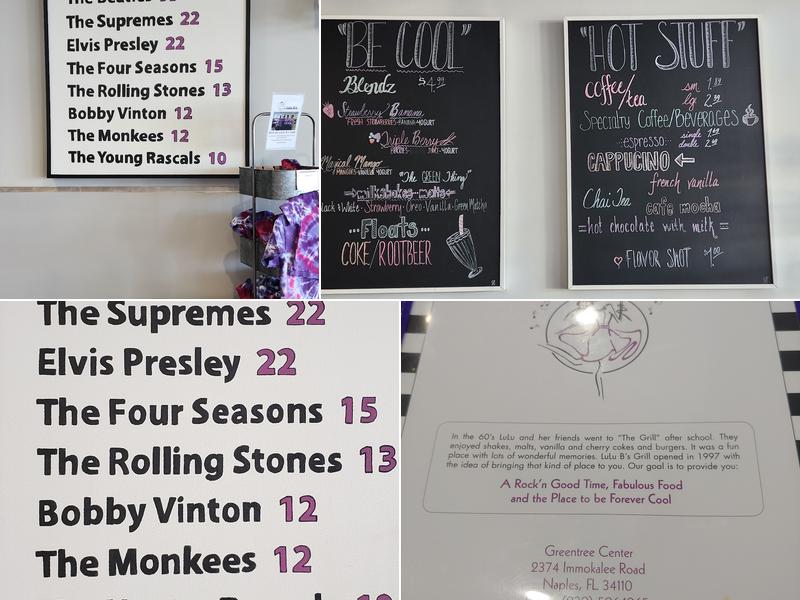 The Supremes 22
Elvis Presley 22
The Four Seasons 15
The Rolling Stones 13
Bobby Vinton 12
The Monkees 12
The Young Rascals 10
"BE COOL"
Blendz $4.99
Strawberry Banana
FRESH STRAWBERRIES-BANANA-YOGURT
Triple Berry
BERRIES YOGURT
Magical Mango
MANGOES-VANILLA YOGURT
"The GREEN Thing"
milkshakes-malts
Black & White-Strawberry-Oreo-Vanilla-Green Matcha
Floats
COKE/ROOTBEER
"HOT STUFF"
coffee/tea sm. 1.89
lg. 2.99
Specialty Coffee/Beverages
espresso single
double
CAPPUCINO
french vanilla
Chai Tea
cafe mocha
hot chocolate with milk
FLAVOR SHOT $1.00
The Supremes 22
Elvis Presley 22
The Four Seasons 15
The Rolling Stones 13
Bobby Vinton 12
The Monkees 12
In the 60's LuLu and her friends went to "The Grill" after school. They
enjoyed shakes, malts, vanilla and cherry cokes and burgers. It was a fun
place with lots of wonderful memories. LuLu B's Grill opened in 1997 with
the idea of bringing that kind of place to you. Our goal is to provide you:
A Rock'n Good Time, Fabulous Food
and the Place to be Forever Cool
Greentree Center
2374 Immokalee Road
Naples, FL 34110